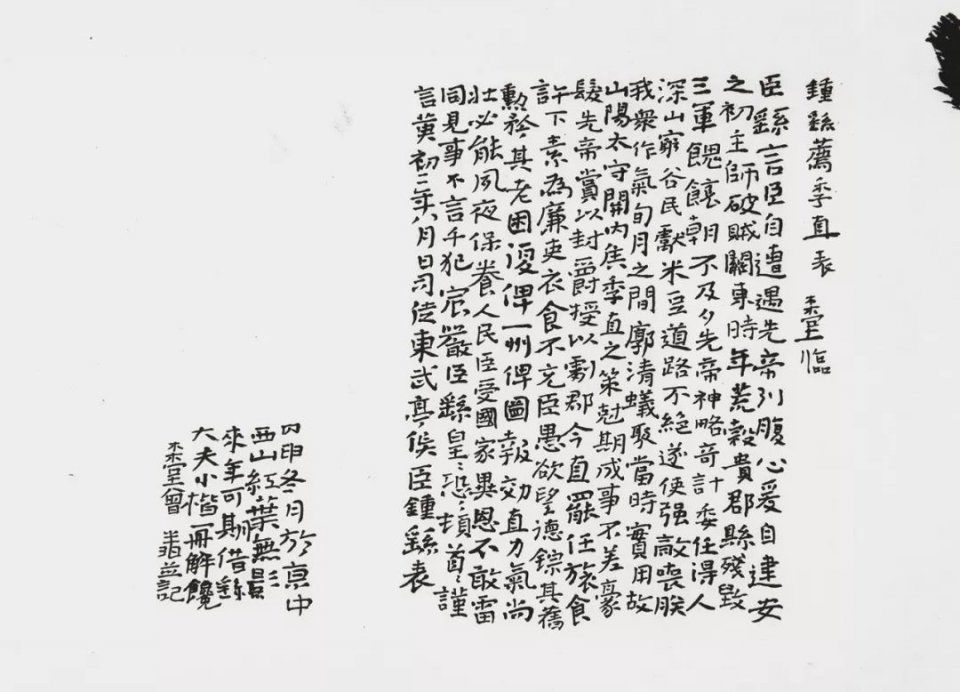 鍾繇薦季直表 臨
臣繇言臣自遭遇先帝列腹心爰自建安
之初王師破賊關東時年荒穀貴郡縣殘毀
三軍餽饟朝不及夕先帝神略奇計委任得人
深山窮谷民獻米豆道路不絕遂使强敵喪朕
我衆作氣旬月之間廓清蟻聚當時實用故
山陽太守關內侯季直之策尅期成事不差豪
髮先帝賞以封爵授以劇郡今直罷任旅食
許下素為廉吏衣食不充臣愚欲望德錄其舊
勲矜其老困復俾一州俾圖報効直力氣尚
壯必能夙夜保養人民臣受國家異恩不敢雷
同見事不言干犯宸嚴臣繇皇〻恐〻頓首〻謹
言黃初三年八月日司徒東武亭侯臣鍾繇表
冬月於京中
西山紅葉無影
來年可期借
大夫小楷一冊解饞
曾 並記